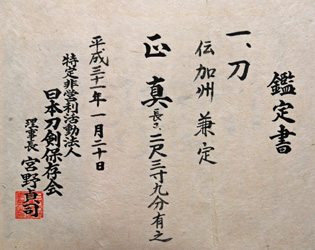 鑑定書
一、刀
伝加州兼定
正真 長さ二尺三寸九分有之
平成三十一年一月二十日
特定非営利活動法人
日本刀剣保存会
理事長 宮野貞司